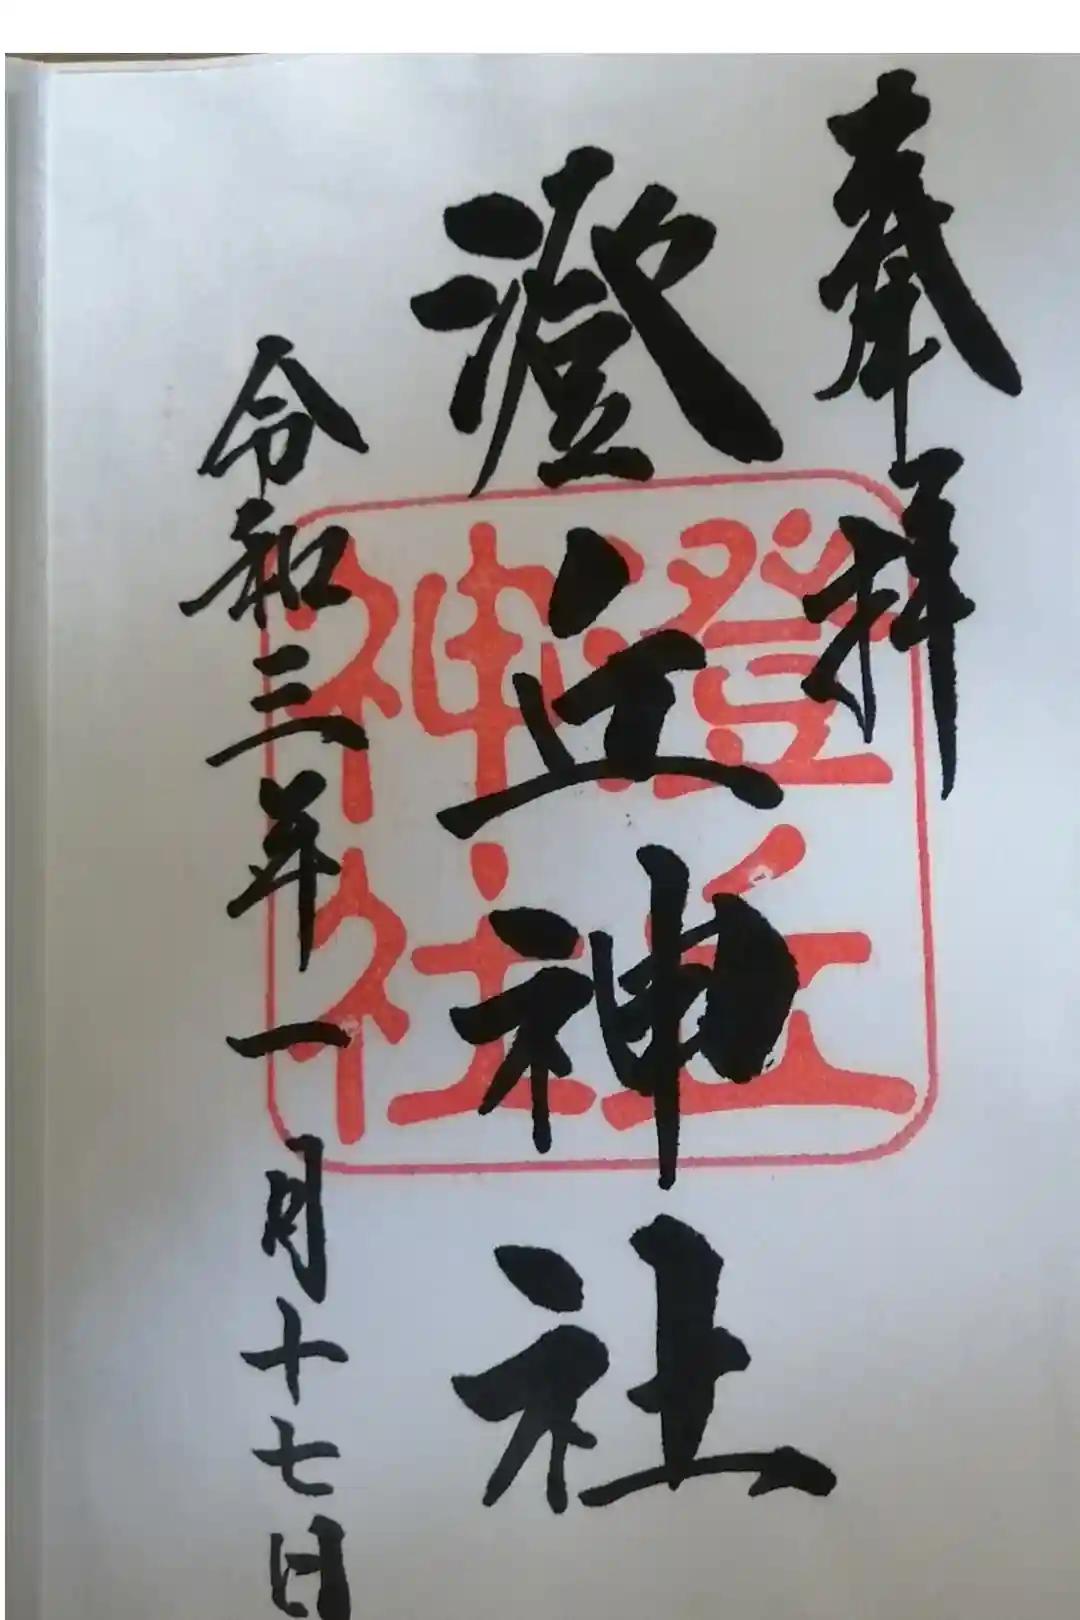 奉拝
澄丘神社
令和三年一月十七日
澄丘
神社